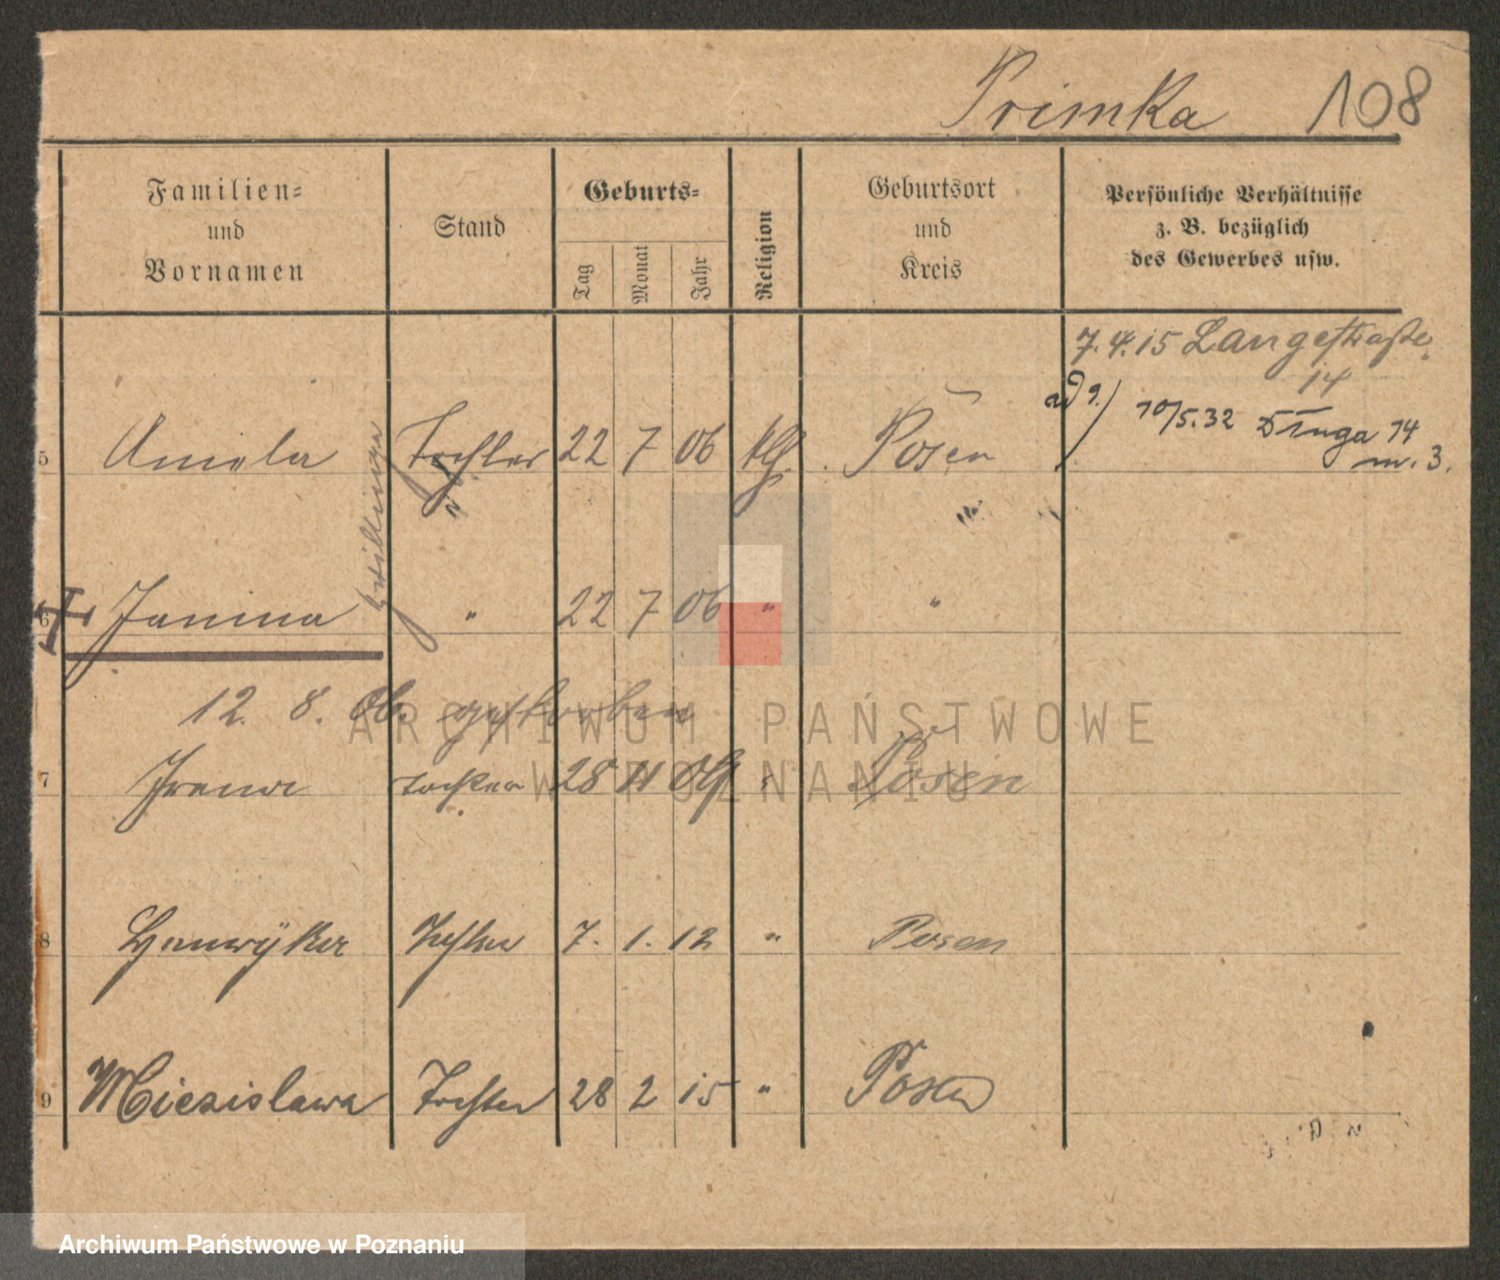 Primka 108
Familien=
und
Vornamen
Stand
Geburts=
Tag
Monat
Jahr
Religion
Geburtsort
und
Kreis
Persönliche Verhältnisse
z. B. bezüglich
des Gewerbes usw.
7.4.15 Langestraße
14
ad 9.) 10/5.32 Długa 14
m. 3.
5 Aniela Tochter 22 7 06 kth. Posen
Zwillinge
6 Janina " 22 7 06 " "
12. 8. 06 gestorben
7 Irena Tochter 28 11 Posen
8 Tochter 7. 1. 12 " Posen
9 Miezislawa Tochter 28 2 15 " Posen
ARCHIWUM PAŃSTWOWE
W POZNANIU
Archiwum Państwowe w Poznaniu